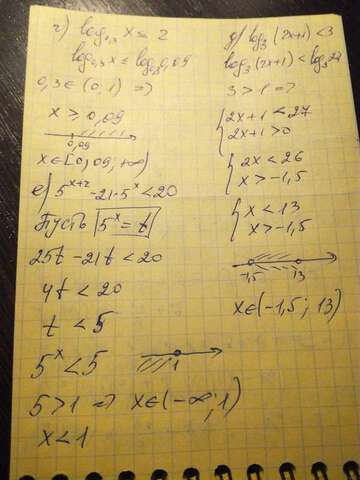 г) log₀,₃ x = 2
log₀,₃ x = log₀,₃ 0,09
0,3 ∈ (0, 1) ⇒
x ≥ 0,09
0,09
x ∈ [0,09; +∞)
е) 5^(x+2) - 21·5^x < 20
Пусть 5^x = t
25t - 21t < 20
4t < 20
t < 5
5^x < 5
1
5 > 1 ⇒ x ∈ (-∞; 1)
x < 1
д) log₃ (2x+1) < 3
log₃ (2x+1) < log₃ 27
3 > 1 ⇒
{ 2x+1 < 27
2x+1 > 0
{ 2x < 26
x > -1,5
{ x < 13
x > -1,5
-1,5 13
x ∈ (-1,5; 13)